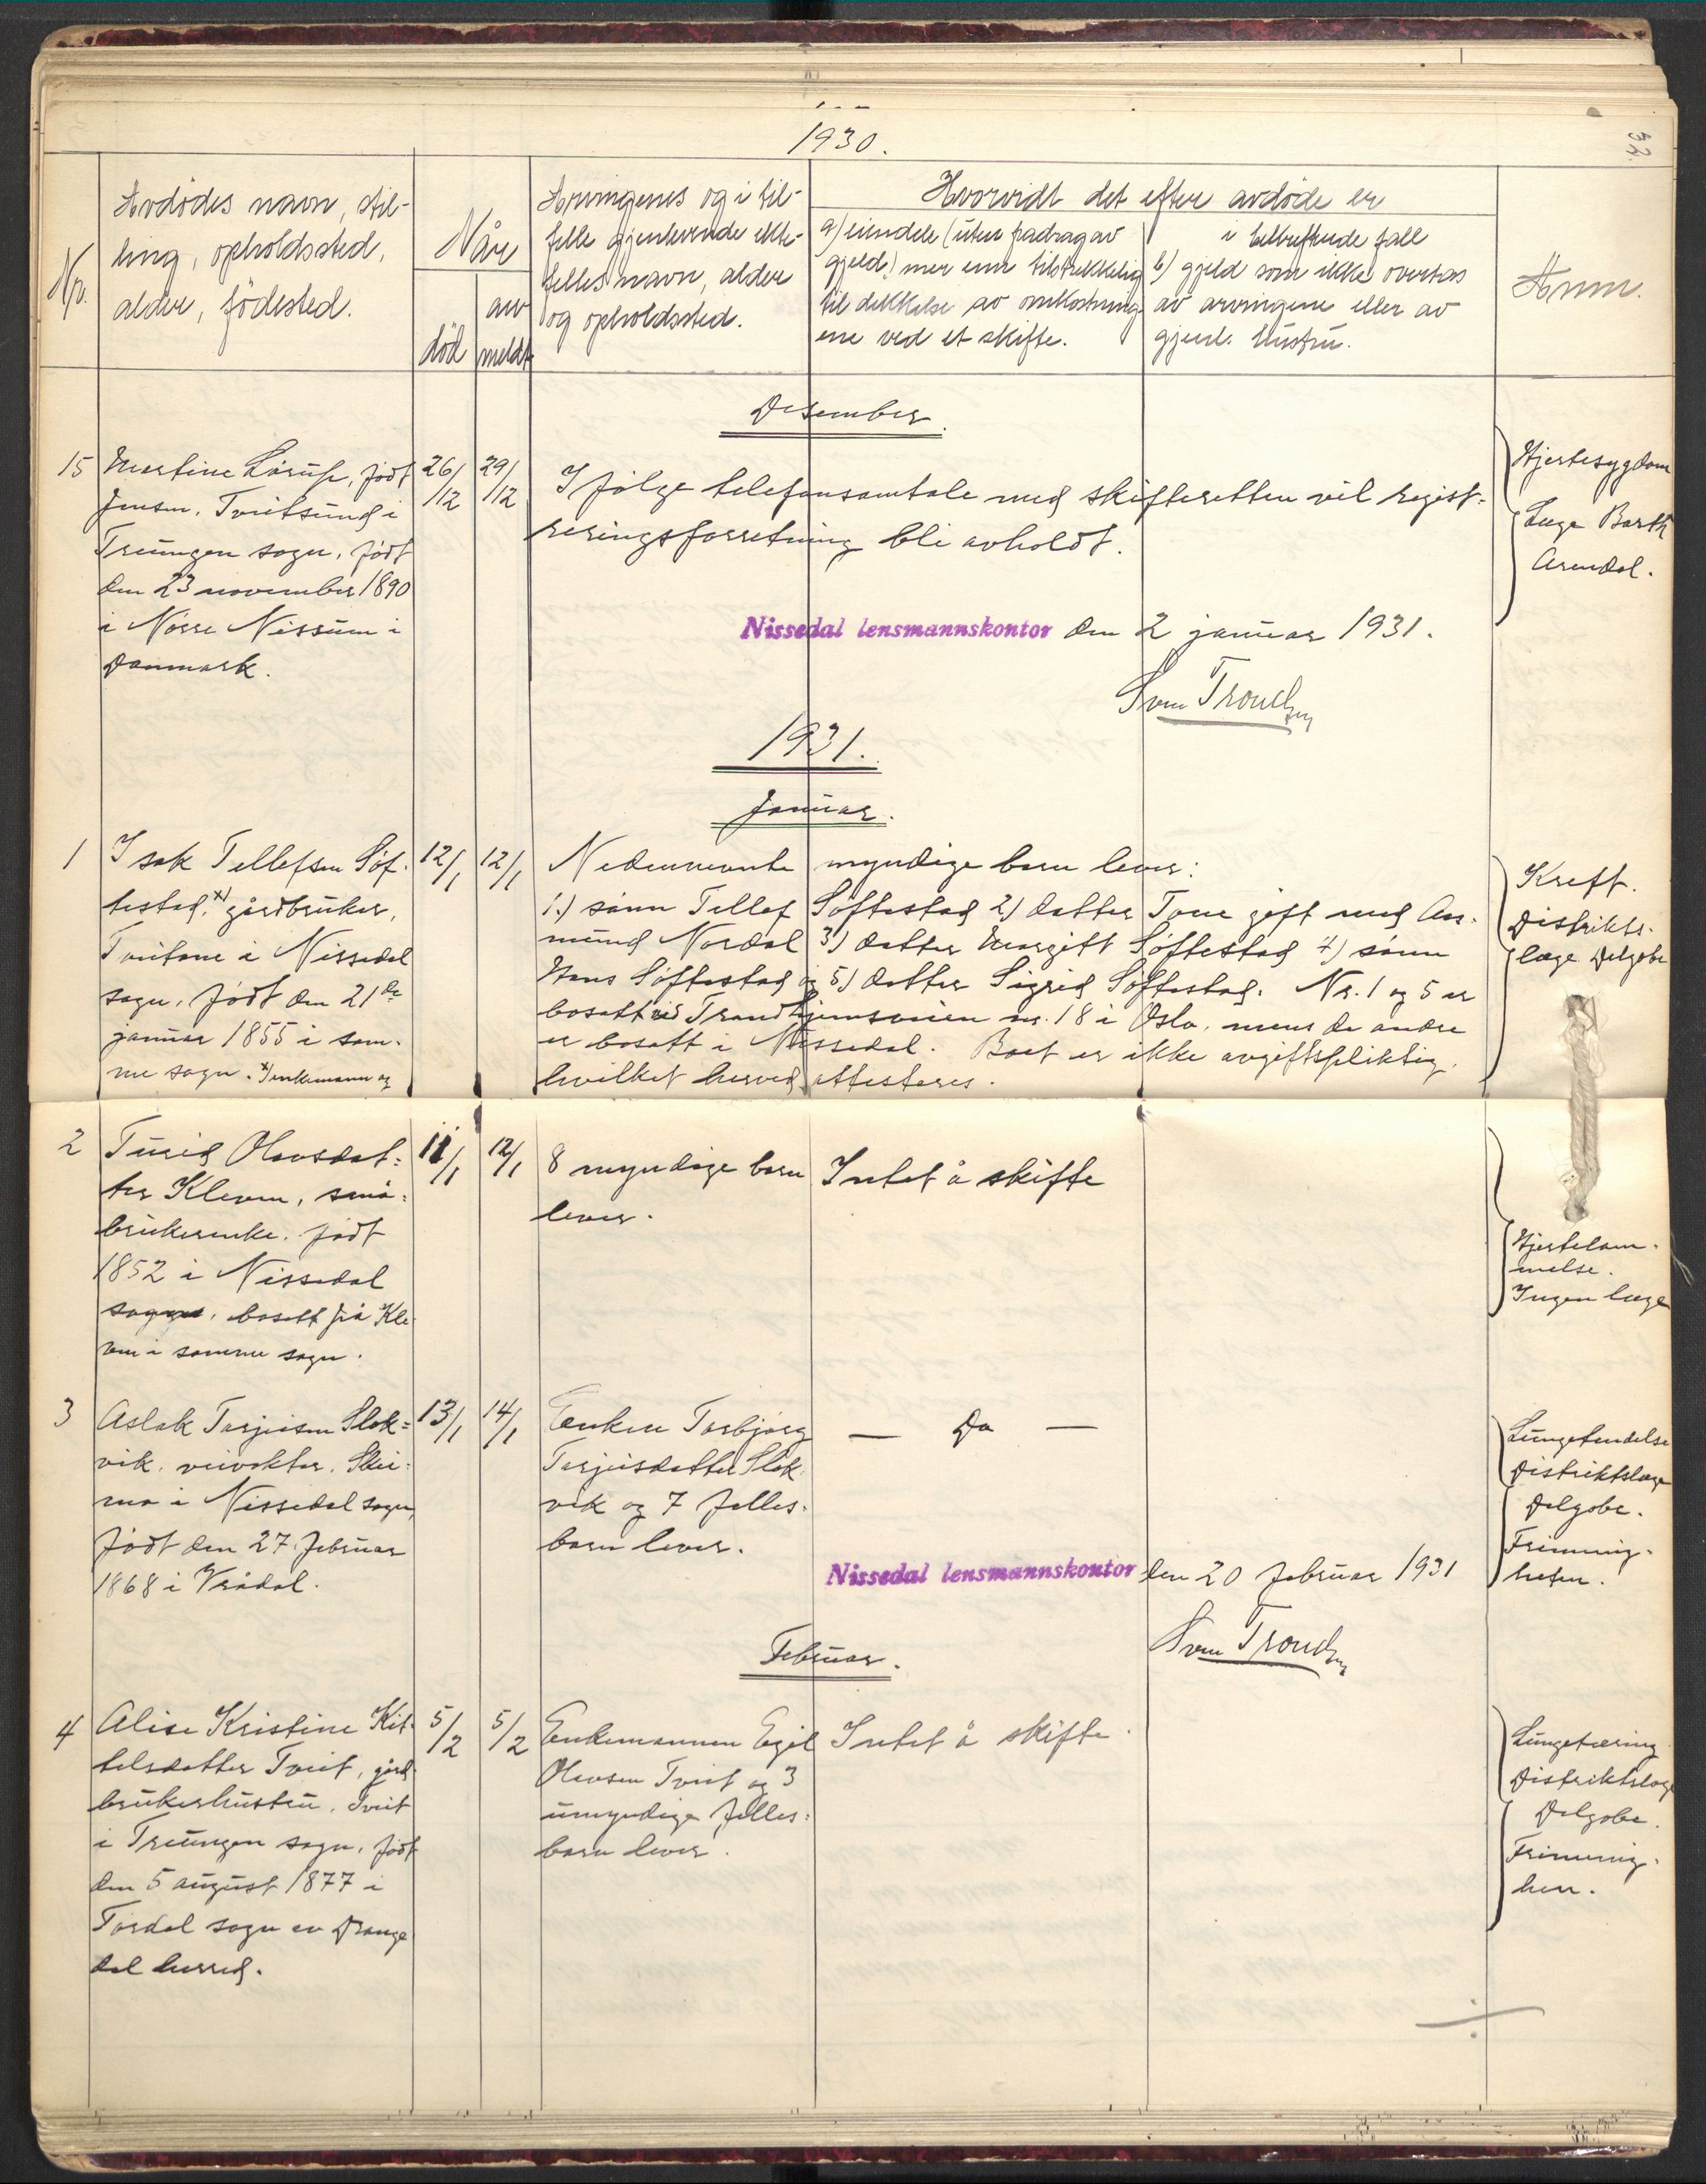 1930.
32.
Nr.
Avdødes navn, stil-
ling, opholdssted,
alder, fødested.
Når
død
an
meldt
Arvingenes og i til-
felle gjenlevende ekte-
felles navn, alder
og opholdssted.
Hvorvidt det efter avdøde er
a) eiendele (uten fradrag av
gjeld) mer enn tilstrekkelig
til dekkelse av omkostning-
ene ved et skifte.
i bekreftende fall
b) gjeld som ikke overtas
av arvingene eller av
gjenl. hustru.
Anm.
Desember.
15
Martine Lørup, født
Jensen, Tveitsund i
Treungen sogn, født
den 23 november 1890
i Nørre Nissum i
Danmark.
26/12
29/12
I følge telefonsamtale med skifteretten vil regist-
reringsforretning bli avholdt.
Hjertesygdom
Læge Barth
Arendal.
Nissedal lensmannskontor den 2 januar 1931.
Sven Trondsen
1931.
Januar.
1
Isak Tellefsen Søf-
testad, x) gårdbruker,
Tveitane i Nissedal
sogn, født den 21de
januar 1855 i sam-
me sogn. x) enkemann og
12/1
12/1
Nedennevnte myndige barn lever:
1.) sønn Tellef Søftestad 2) datter Tone gift med Aas-
mund Nordal 3) datter Margitt Søftestad 4) sønn
Hans Søftestad og 5) datter Sigrid Søftestad. Nr. 1 og 5 er
bosatt ved Trondhjemsveien nr. 18 i Oslo, mens de andre
er bosatt i Nissedal. Boet er ikke avgiftspliktig,
hvilket herved attesteres.
Kreft.
Distrikts-
læge Delgobe
2
Turid Olavsdat-
ter Kleven, små-
brukerenke, født
1852 i Nissedal
sogn, bosatt på Kle
ven i samme sogn.
11/1
12/1
8 myndige barn
lever.
Intet å skifte
Hjertelam-
melse.
Ingen læge
3
Aslak Tarjeisen Slok-
vik, veivokter, Skei-
mo i Nissedal sogn,
født den 27 februar
1868 i Vrådal.
13/1
14/1
Enken Torbjørg
Tarjeisdatter Slok-
vik og 7 felles-
barn lever.
— Do —
Lungetendelse
Distriktslæge
Delgobe.
Nissedal lensmannskontor den 20 februar 1931
Sven Trondsen
Februar.
4
Alise Kristine Kit-
telsdatter Tveit, gård
brukerhustru, Tveit
i Treungen sogn, født
den 5 august 1877 i
Tørdal sogn av Drange
dal herred.
5/2
5/2
Enkemannen Egil
Olavsen Tveit og 3
umyndige felles-
barn lever.
Intet å skifte.
Lungetæring
Distriktslæge
Delgobe.